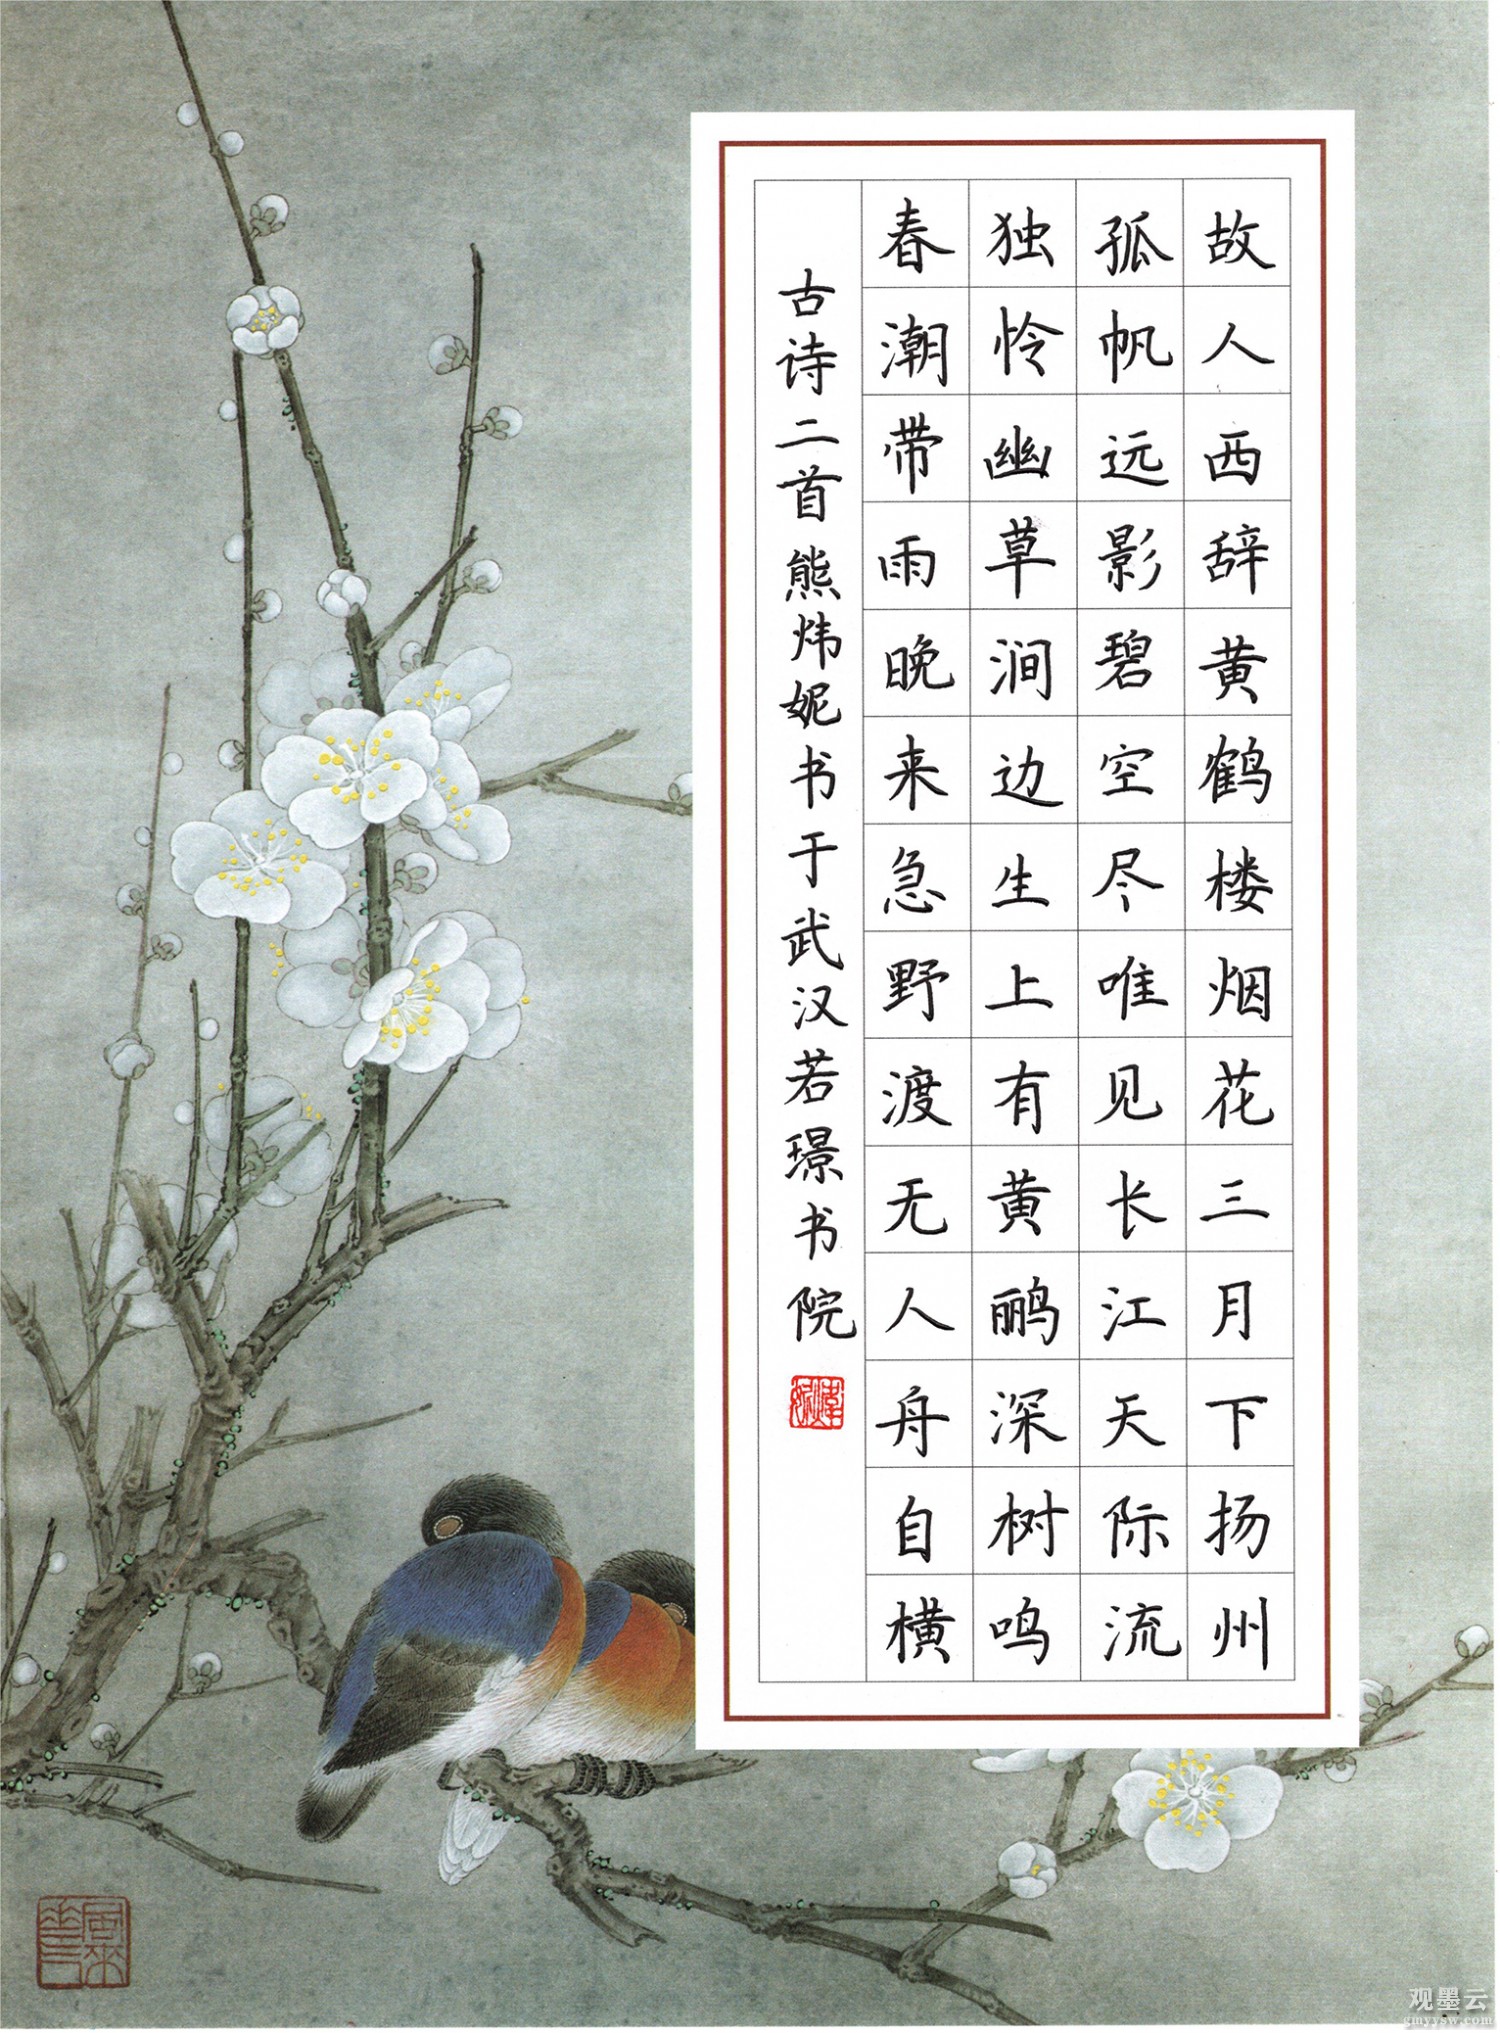 故人西辞黄鹤楼烟花三月下扬州
孤帆远影碧空尽唯见长江天际流
独怜幽草涧边生上有黄鹂深树鸣
春潮带雨晚来急野渡无人舟自横
古诗二首熊炜妮书于武汉若璟书院
观墨云
gmyysw.com